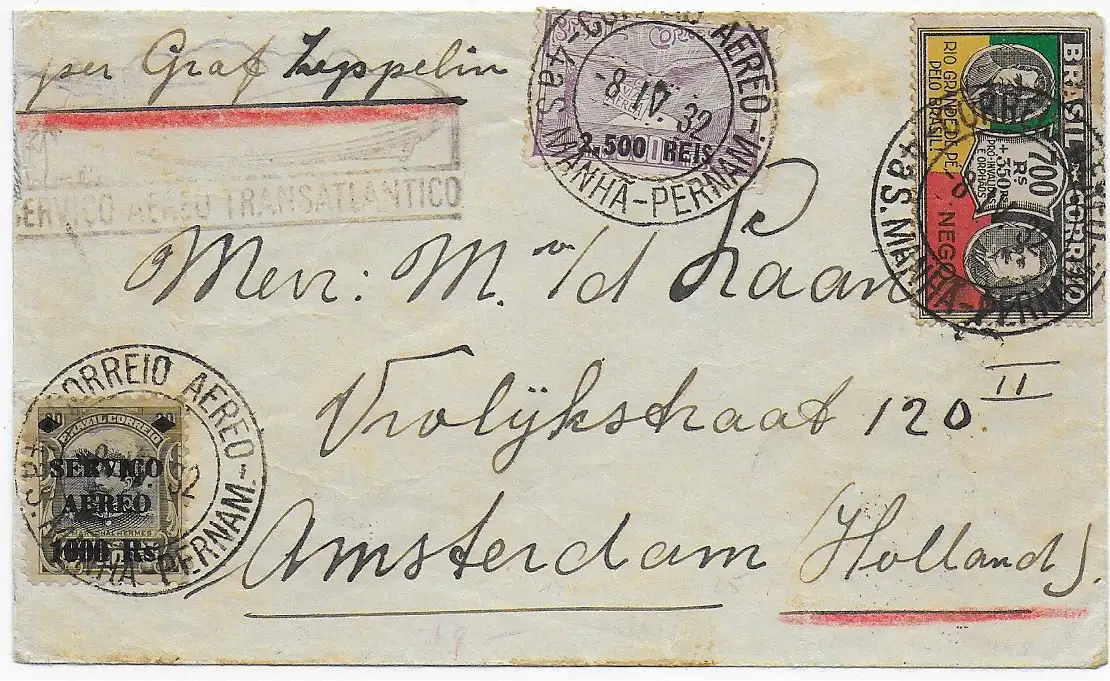 per Graf Zeppelin
SERVIÇO AÉREO TRANSATLANTICO
CORREIO AEREO
-8 IV 32
2.500 REIS
4as MANHÃ-PERNAM.-
BRASIL-CORREIO
RIO GRANDE, DE PÉ,
PELO BRASIL!
700
Rs
+ 350 Rs
NEGO
4a S. MANHÃ-PERN
Menr: M. v/d Laan
Vrolijkstraat 120 II
Amsterdam (Holland).
CORREIO AEREO-
32
MANHÃ-PERNAM.-
20 20
BRAZIL CORREIO
SERVIÇO
AEREO
MARECHAL HERMES
1000 Rs.